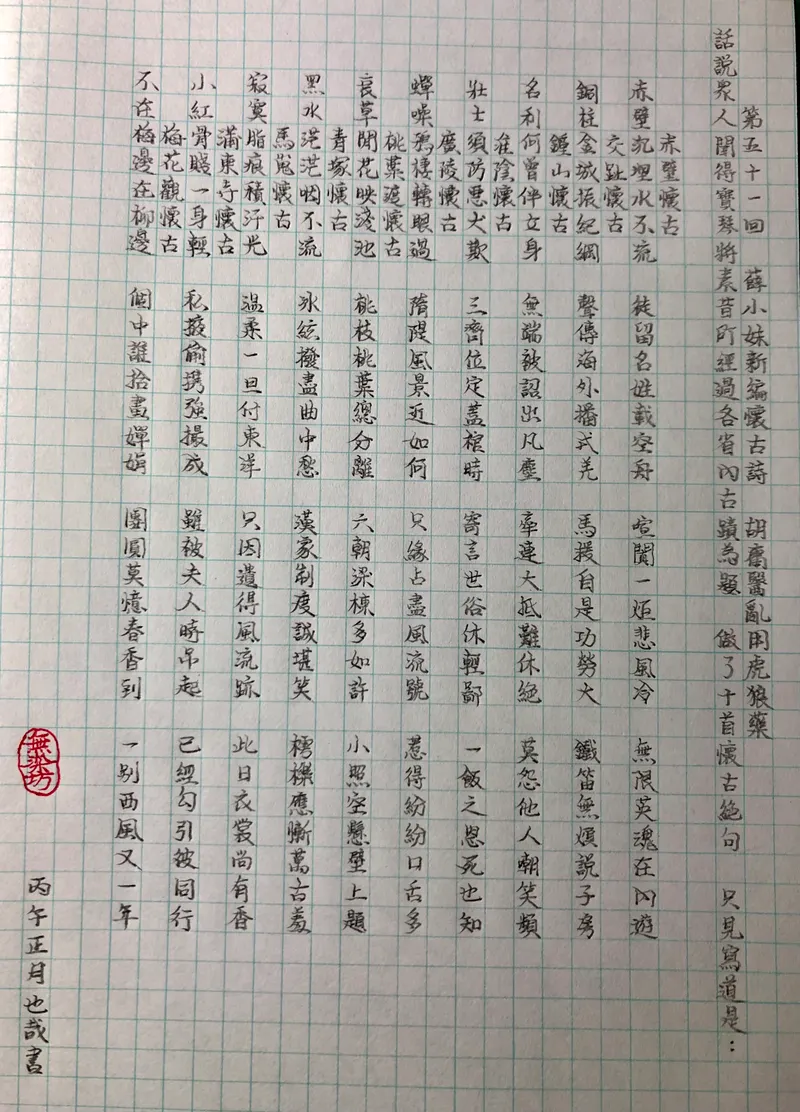 第五十一回 薛小妹新編懷古詩 胡庸醫亂用虎狼藥
話說眾人聞得寶琴將素昔所經過各省內古蹟為題 做了十首懷古絕句 只見寫道是：
赤壁懷古
赤壁沉埋水不流 徒留名姓載空舟 喧闐一炬悲風冷 無限英魂在內遊
交趾懷古
銅柱金城振紀綱 聲傳海外播戎羌 馬援自是功勞大 鐵笛無煩說子房
鍾山懷古
名利何曾伴女身 無端被詔出凡塵 牽連大抵難休絕 莫怨他人嘲笑頻
淮陰懷古
壯士須防惡犬欺 三齊位定蓋棺時 寄言世俗休輕鄙 一飯之恩死也知
廣陵懷古
蟬噪鴉棲轉眼過 隋隄風景近如何 只緣占盡風流號 惹得紛紛口舌多
桃葉渡懷古
衰草閒花映淺池 桃枝桃葉總分離 六朝梁棟多如許 小照空懸壁上題
青塚懷古
黑水茫茫咽不流 冰絃撥盡曲中愁 漢家制度誠堪笑 樗櫟應慚萬古羞
馬嵬懷古
寂寞脂痕積汗光 溫柔一旦付東洋 只因遺得風流跡 此日衣裳尚有香
蒲東寺懷古
小紅骨賤一身輕 私掖偷攜強撮成 雖被夫人時吊起 已經勾引彼同行
梅花觀懷古
不在梅邊在柳邊 個中誰拾畫嬋娟 團圓莫憶春香到 一別西風又一年
丙午正月也哉書